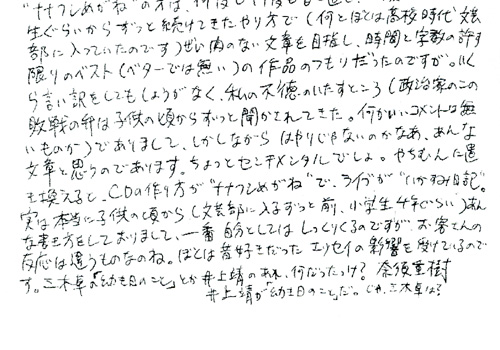 "ナサフンめがね"の方は、
生ぐらいからずっと続けてきたやり方で(何とぼくは高校時代文芸
部に入っていたのです)ぜい肉のない文章を目指し、時間と字数の許す
限りのベスト(ベターでは無い)の作品のつもりだったのですが。いく
ら言い訳をしてもしょうがなく、私の不徳のいたすところ(政治家のこの
敗戦の弁は子供の頃からずっと聞かされてきた。何かいいコメントは無
いものか)でありまして、しかしながらはやりじゃないのかなあ、あんな
文章と思うのであります。ちょっとセンチメンタルでしょ。やちむんに置
き換えると、CDの作り方が"ナサフンめがね"で、ライブが"いかすみ日記"。
実は本当に子供の頃から(文芸部に入るずっと前、小学生4年ぐらい)あん
な書き方をしておりまして、一番自分としてはしっくりくるのですが、お客さんの
反応は違うものなのね。ぼくは昔好きだったエッセイの影響を受けているので
す。三木卓の「幼き日のこと」とか井上靖のあれ、何だったっけ? 奈須重樹
井上靖が「幼き日のこと」だ。じゃ、三木卓は?